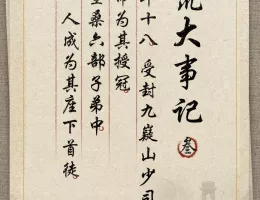 大事记
叁
十八 受封九嶷山少司
为其授冠
桑六部子弟中
人成为其座下首徒